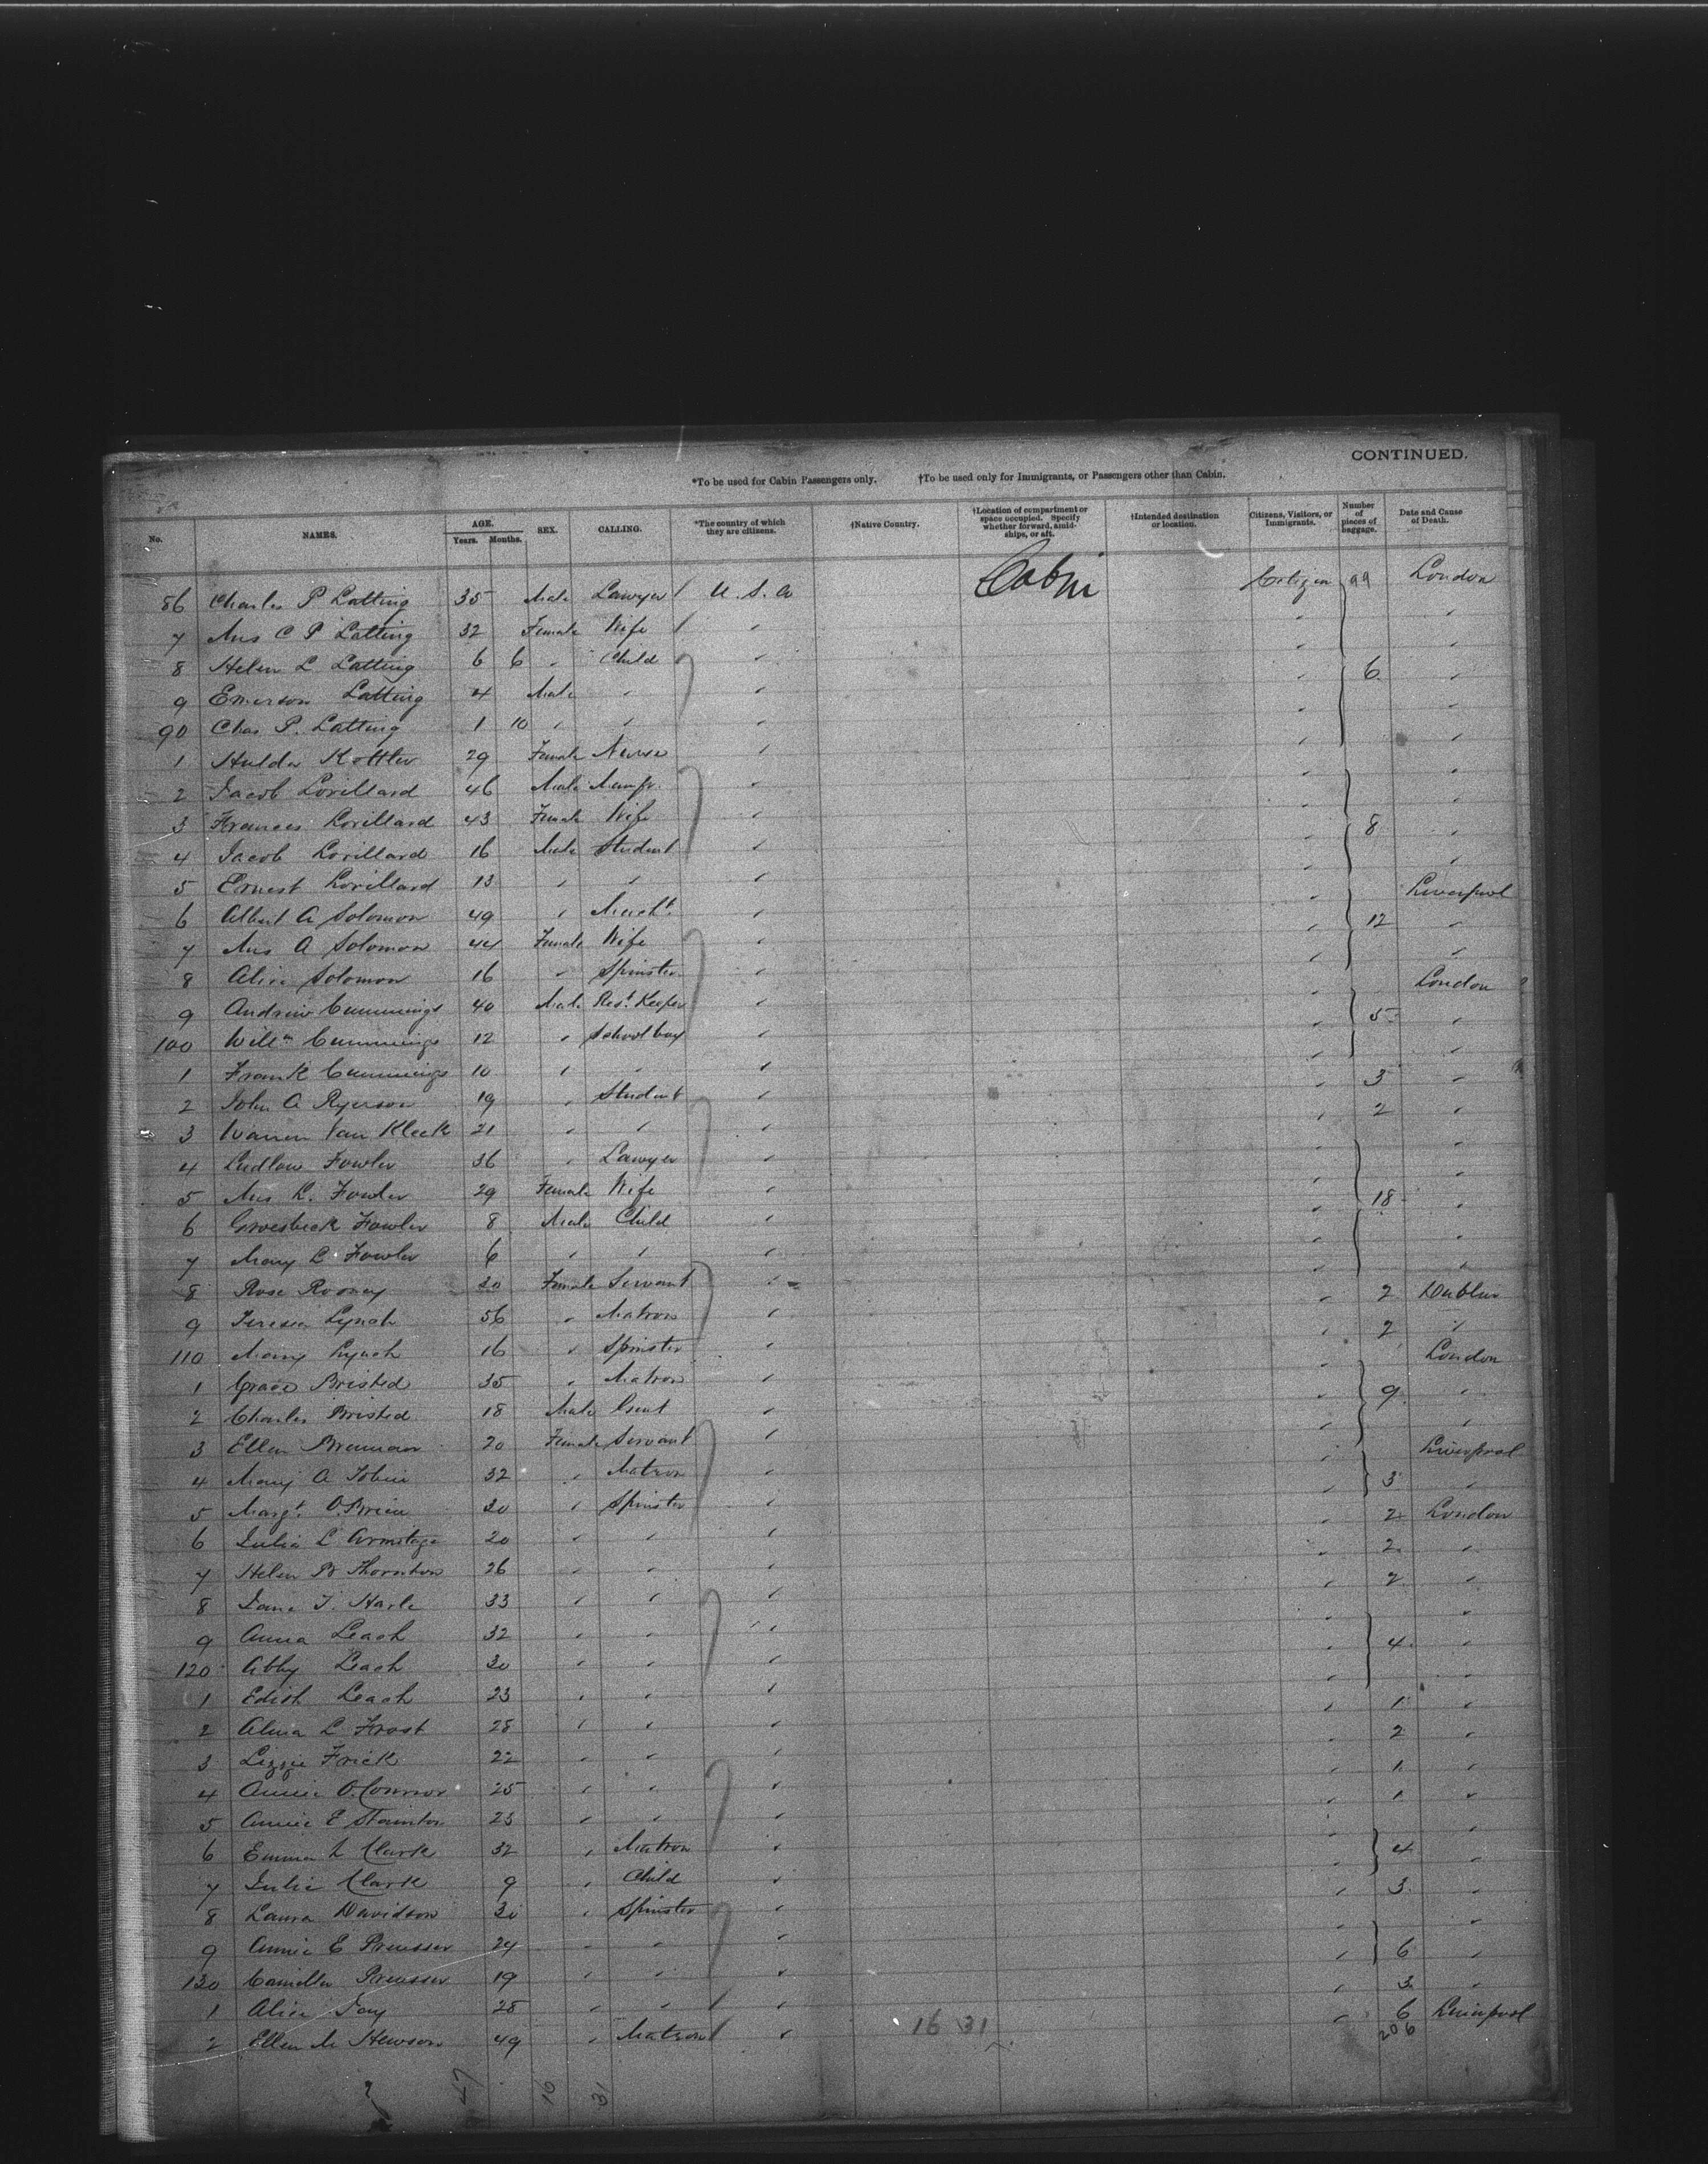 CONTINUED.
*To be used for Cabin Passengers only. †To be used only for Immigrants, or Passengers other than Cabin.
No. NAMES. AGE. Years. Months. SEX. CALLING. *The country of which they are citizens. †Native Country. †Location of compartment or space occupied. Specify whether forward, amidships, or aft. †Intended destination or location. Citizens, Visitors, or Immigrants. Number of pieces of baggage. Date and Cause of Death.
86 Charles P Latting 35 Male Lawyer U.S.A Cabin Citizen London
7 Mrs C P Latting 32 Female Wife " " "
8 Helen L Latting 6 6 " Child " " "
9 Emerson Latting 4 Male " " " 6 "
90 Chas P. Latting 1 10 " " " " "
1 Hulda Kottler 29 Female Nurse " " "
2 Jacob Lorillard 46 Male Manfr. " " "
3 Frances Lorillard 43 Female Wife " " "
4 Jacob Lorillard 16 Male Student " " 8 "
5 Ernest Lorillard 13 " " " " "
6 Albert A Solomon 49 " Mercht " " Liverpool
7 Mrs A Solomon 44 Female Wife " " 12 "
8 Alice Solomon 16 " Spinster " " "
9 Andrew Cummings 40 Male Rest Keeper " " London
100 Willm Cummings 12 " School boy " " 5 "
1 Frank Cummings 10 " " " " "
2 John A Ryerson 19 " Student " " 3 "
3 Warren Van Kleek 21 " " " " 2 "
4 Ludlow Fowler 36 " Lawyer " " "
5 Mrs L. Fowler 29 Female Wife " " "
6 Groesbeck Fowler 8 Male Child " " 18 "
7 Mary L Fowler 6 " " " " "
8 Rose Rooney 30 Female Servant " " "
9 Teresa Lynch 56 " Matron " " 2 Dublin
110 Mary Lynch 16 " Spinster " " 2 "
1 Grace Bristed 35 " Matron " " London
2 Charles Bristed 18 Male Gent " " 9 "
3 Ellen Brennan 20 Female Servant " " "
4 Mary A Tobin 32 " Matron " " Liverpool
5 Margt O.Brien 30 " Spinster " " 3 "
6 Julia L Armitage 20 " " " " 2 London
7 Helen B Thornton 26 " " " " 2 "
8 Jane T. Harle 33 " " " " 2 "
9 Anna Leach 32 " " " " "
120 Abby Leach 30 " " " " 4 "
1 Edith Leach 23 " " " " "
2 Alma L Frost 28 " " " " 1 "
3 Lizzie Frick 22 " " " " 2 "
4 Annie O.Connor 25 " " " " 1 "
5 Annie E Stainton 23 " " " " 1 "
6 Emma L Clark 32 " Matron " " "
7 Julia Clark 9 " Child " " 4 "
8 Laura Davidson 30 " Spinster " " 3 "
9 Annie E Preusser 24 " " " " "
130 Camilla Preusser 19 " " " " 6 "
1 Alice Fay 28 " " " " 3 "
2 Ellen M Hewson 49 " Matron " " 6 Liverpool
16 31 206
47 16 31